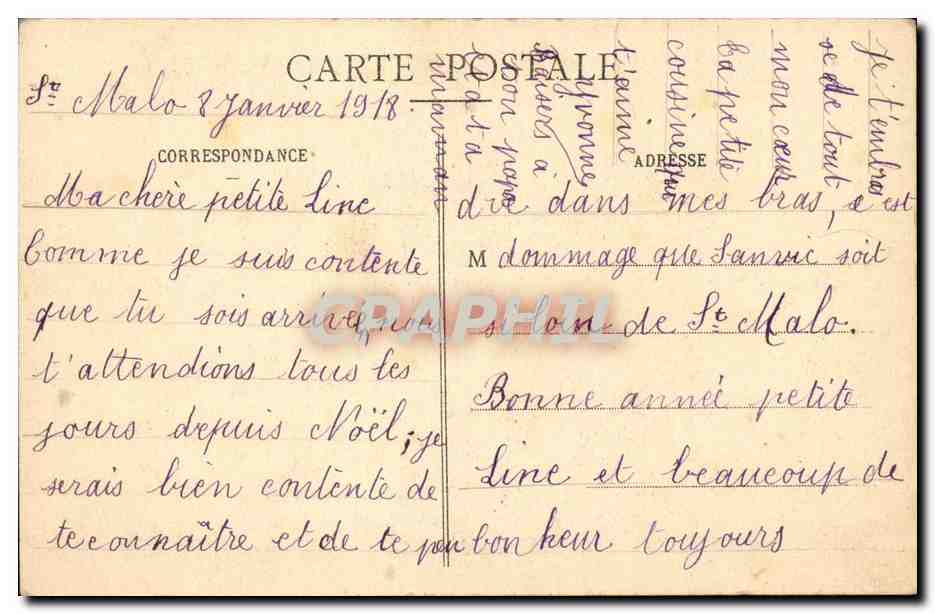 CARTE POSTALE
St Malo 8 Janvier 1918
CORRESPONDANCE
ADRESSE
Ma chère petite Line
Comme je suis contente
que tu sois arrivée, nous
t'attendions tous les
jours depuis Noël; je
serais bien contente de
te connaître et de te pren
dre dans mes bras, c'est
M dommage que Sanvic soit
si loin de St Malo.
Bonne année petite
Line et beaucoup de
bonheur toujours
je t'embras
se de tout
mon cœur
Ta petite
cousine qui
t'aime
Yvonne
Baisers à
ton papa
et à ta
maman
GRAPHIL